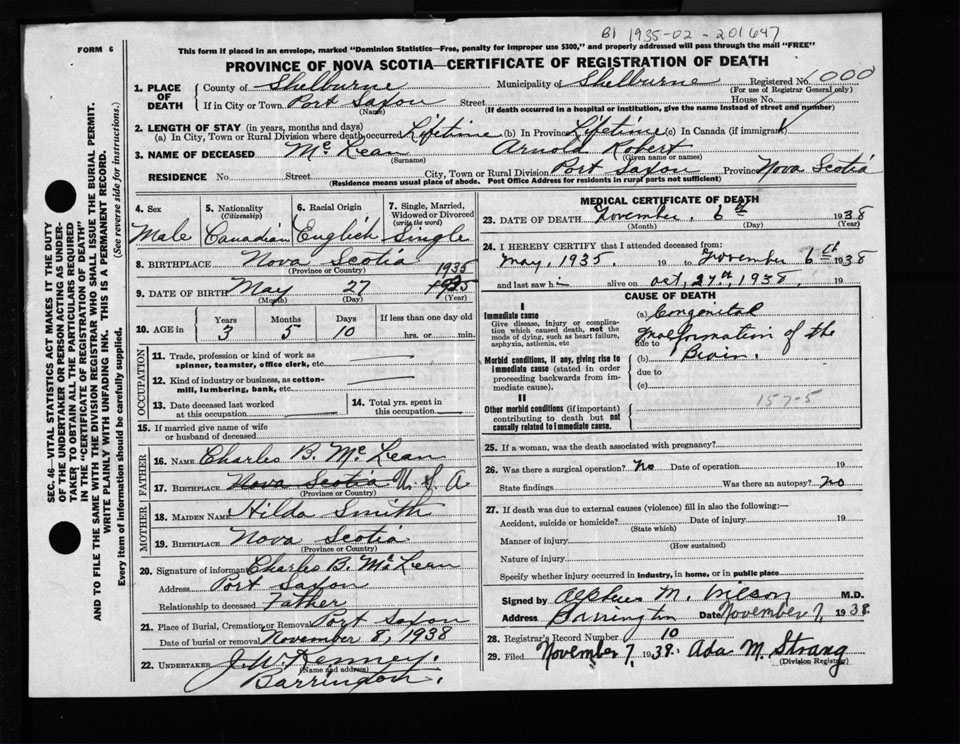 B1 1935-02-201647
FORM 6
This form if placed in an envelope, marked "Dominion Statistics—Free, penalty for improper use $300," and properly addressed will pass through the mail "FREE"
PROVINCE OF NOVA SCOTIA—CERTIFICATE OF REGISTRATION OF DEATH
1. PLACE OF DEATH County of Shelburne Municipality of Shelburne Registered No. 1000
(For use of Registrar General only)
If in City or Town Port Saxon Street House No.
(Name) (If death occurred in a hospital or institution, give the name instead of street and number)
2. LENGTH OF STAY (in years, months and days)
(a) In City, Town or Rural Division where death occurred Lifetime (b) In Province Lifetime (c) In Canada (if immigrant)
3. NAME OF DECEASED McLean Arnold Robert
(Surname) (Given name or names)
RESIDENCE No. Street City, Town or Rural Division Port Saxon Province Nova Scotia
(Residence means usual place of abode. Post Office Address for residents in rural parts not sufficient)
4. Sex Male
5. Nationality (Citizenship) Canadian
6. Racial Origin English
7. Single, Married, Widowed or Divorced (write the word) Single
8. BIRTHPLACE Nova Scotia
(Province or Country)
1935
9. DATE OF BIRTH May 27
(Month) (Day) (Year)
10. AGE in Years Months Days If less than one day old
3 5 10 hrs. or min.
OCCUPATION
11. Trade, profession or kind of work as spinner, teamster, office clerk, etc.
12. Kind of industry or business, as cotton-mill, lumbering, bank, etc.
13. Date deceased last worked at this occupation
14. Total yrs. spent in this occupation
15. If married give name of wife or husband of deceased
FATHER
16. Name Charles B. McLean
17. Birthplace Nova Scotia U.S.A
(Province or Country)
MOTHER
18. Maiden Name Hilda Smith
19. Birthplace Nova Scotia
(Province or Country)
20. Signature of informant Charles B. McLean
Address Port Saxon
Relationship to deceased Father
21. Place of Burial, Cremation or Removal Port Saxon
Date of burial or removal November 8, 1938
22. UNDERTAKER J. W. Kenney.
(Name and address)
Barrington.
MEDICAL CERTIFICATE OF DEATH
23. DATE OF DEATH November 6th 1938
(Month) (Day) (Year)
24. I HEREBY CERTIFY that I attended deceased from:
May, 1935. 19 to November 6th 1938
and last saw h alive on Oct, 27th, 1938. 19
CAUSE OF DEATH
I
Immediate cause (a) Congenital
Give disease, injury or complication which caused death, not the mode of dying, such as heart failure, asphyxia, asthenia, etc
Malformation of the
due to
Morbid conditions, if any, giving rise to immediate cause (stated in order proceeding backwards from immediate cause).
(b) Brain.
due to
(c)
II
Other morbid conditions (if important) contributing to death but not causally related to immediate cause.
157-5
25. If a woman, was the death associated with pregnancy?
26. Was there a surgical operation? no Date of operation 19
State findings Was there an autopsy? no
27. If death was due to external causes (violence) fill in also the following:—
Accident, suicide or homicide? Date of injury 19
(State which)
Manner of injury
(How sustained)
Nature of injury
Specify whether injury occurred in industry, in home, or in public place
Signed by Alpheus M. Wilson M.D.
Address Barrington Date November 7, 1938
28. Registrar's Record Number 10
29. Filed November 7, 1938. Ada M. Strang
(Division Registrar)
SEC. 46—VITAL STATISTICS ACT MAKES IT THE DUTY
OF THE UNDERTAKER OR PERSON ACTING AS UNDER-
TAKER TO OBTAIN ALL THE PARTICULARS REQUIRED
IN THE "CERTIFICATE OF REGISTRATION OF DEATH"
AND TO FILE THE SAME WITH THE DIVISION REGISTRAR WHO SHALL ISSUE THE BURIAL PERMIT.
WRITE PLAINLY WITH UNFADING INK. THIS IS A PERMANENT RECORD.
Every item of information should be carefully supplied. (See reverse side for instructions.)